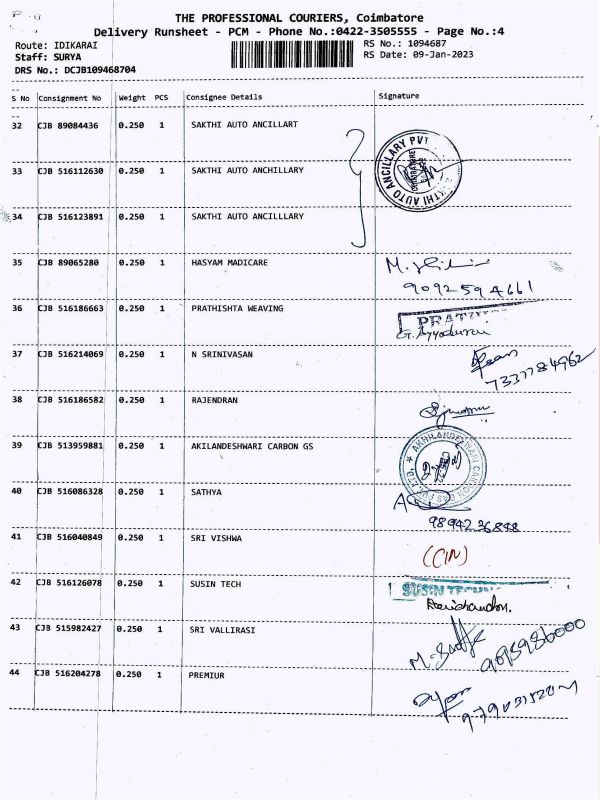 THE PROFESSIONAL COURIERS, Coimbatore
Delivery Runsheet - PCM - Phone No.:0422-3505555 - Page No.:4
Route: IDIKARAI RS No.: 1094687
Staff: SURYA RS Date: 09-Jan-2023
DRS No.: DCJB109468704
S No Consignment No Weight PCS Consignee Details Signature
32 CJB 89084436 0.250 1 SAKTHI AUTO ANCILLART
33 CJB 516112630 0.250 1 SAKTHI AUTO ANCHILLARY
SAKTHI AUTO ANCILLARY PVT
34 CJB 516123891 0.250 1 SAKTHI AUTO ANCILLLARY
35 CJB 89065280 0.250 1 HASYAM MADICARE
9092594661
36 CJB 516186663 0.250 1 PRATHISHTA WEAVING
37 CJB 516214069 0.250 1 N SRINIVASAN
7337784962
38 CJB 516186582 0.250 1 RAJENDRAN
39 CJB 513959881 0.250 1 AKILANDESHWARI CARBON GS
40 CJB 516086328 0.250 1 SATHYA
41 CJB 516040849 0.250 1 SRI VISHWA
(CIN)
42 CJB 516126078 0.250 1 SUSIN TECH
SUSIN
Ravichandran.
43 CJB 515982427 0.250 1 SRI VALLIRASI
44 CJB 516204278 0.250 1 PREMIUR